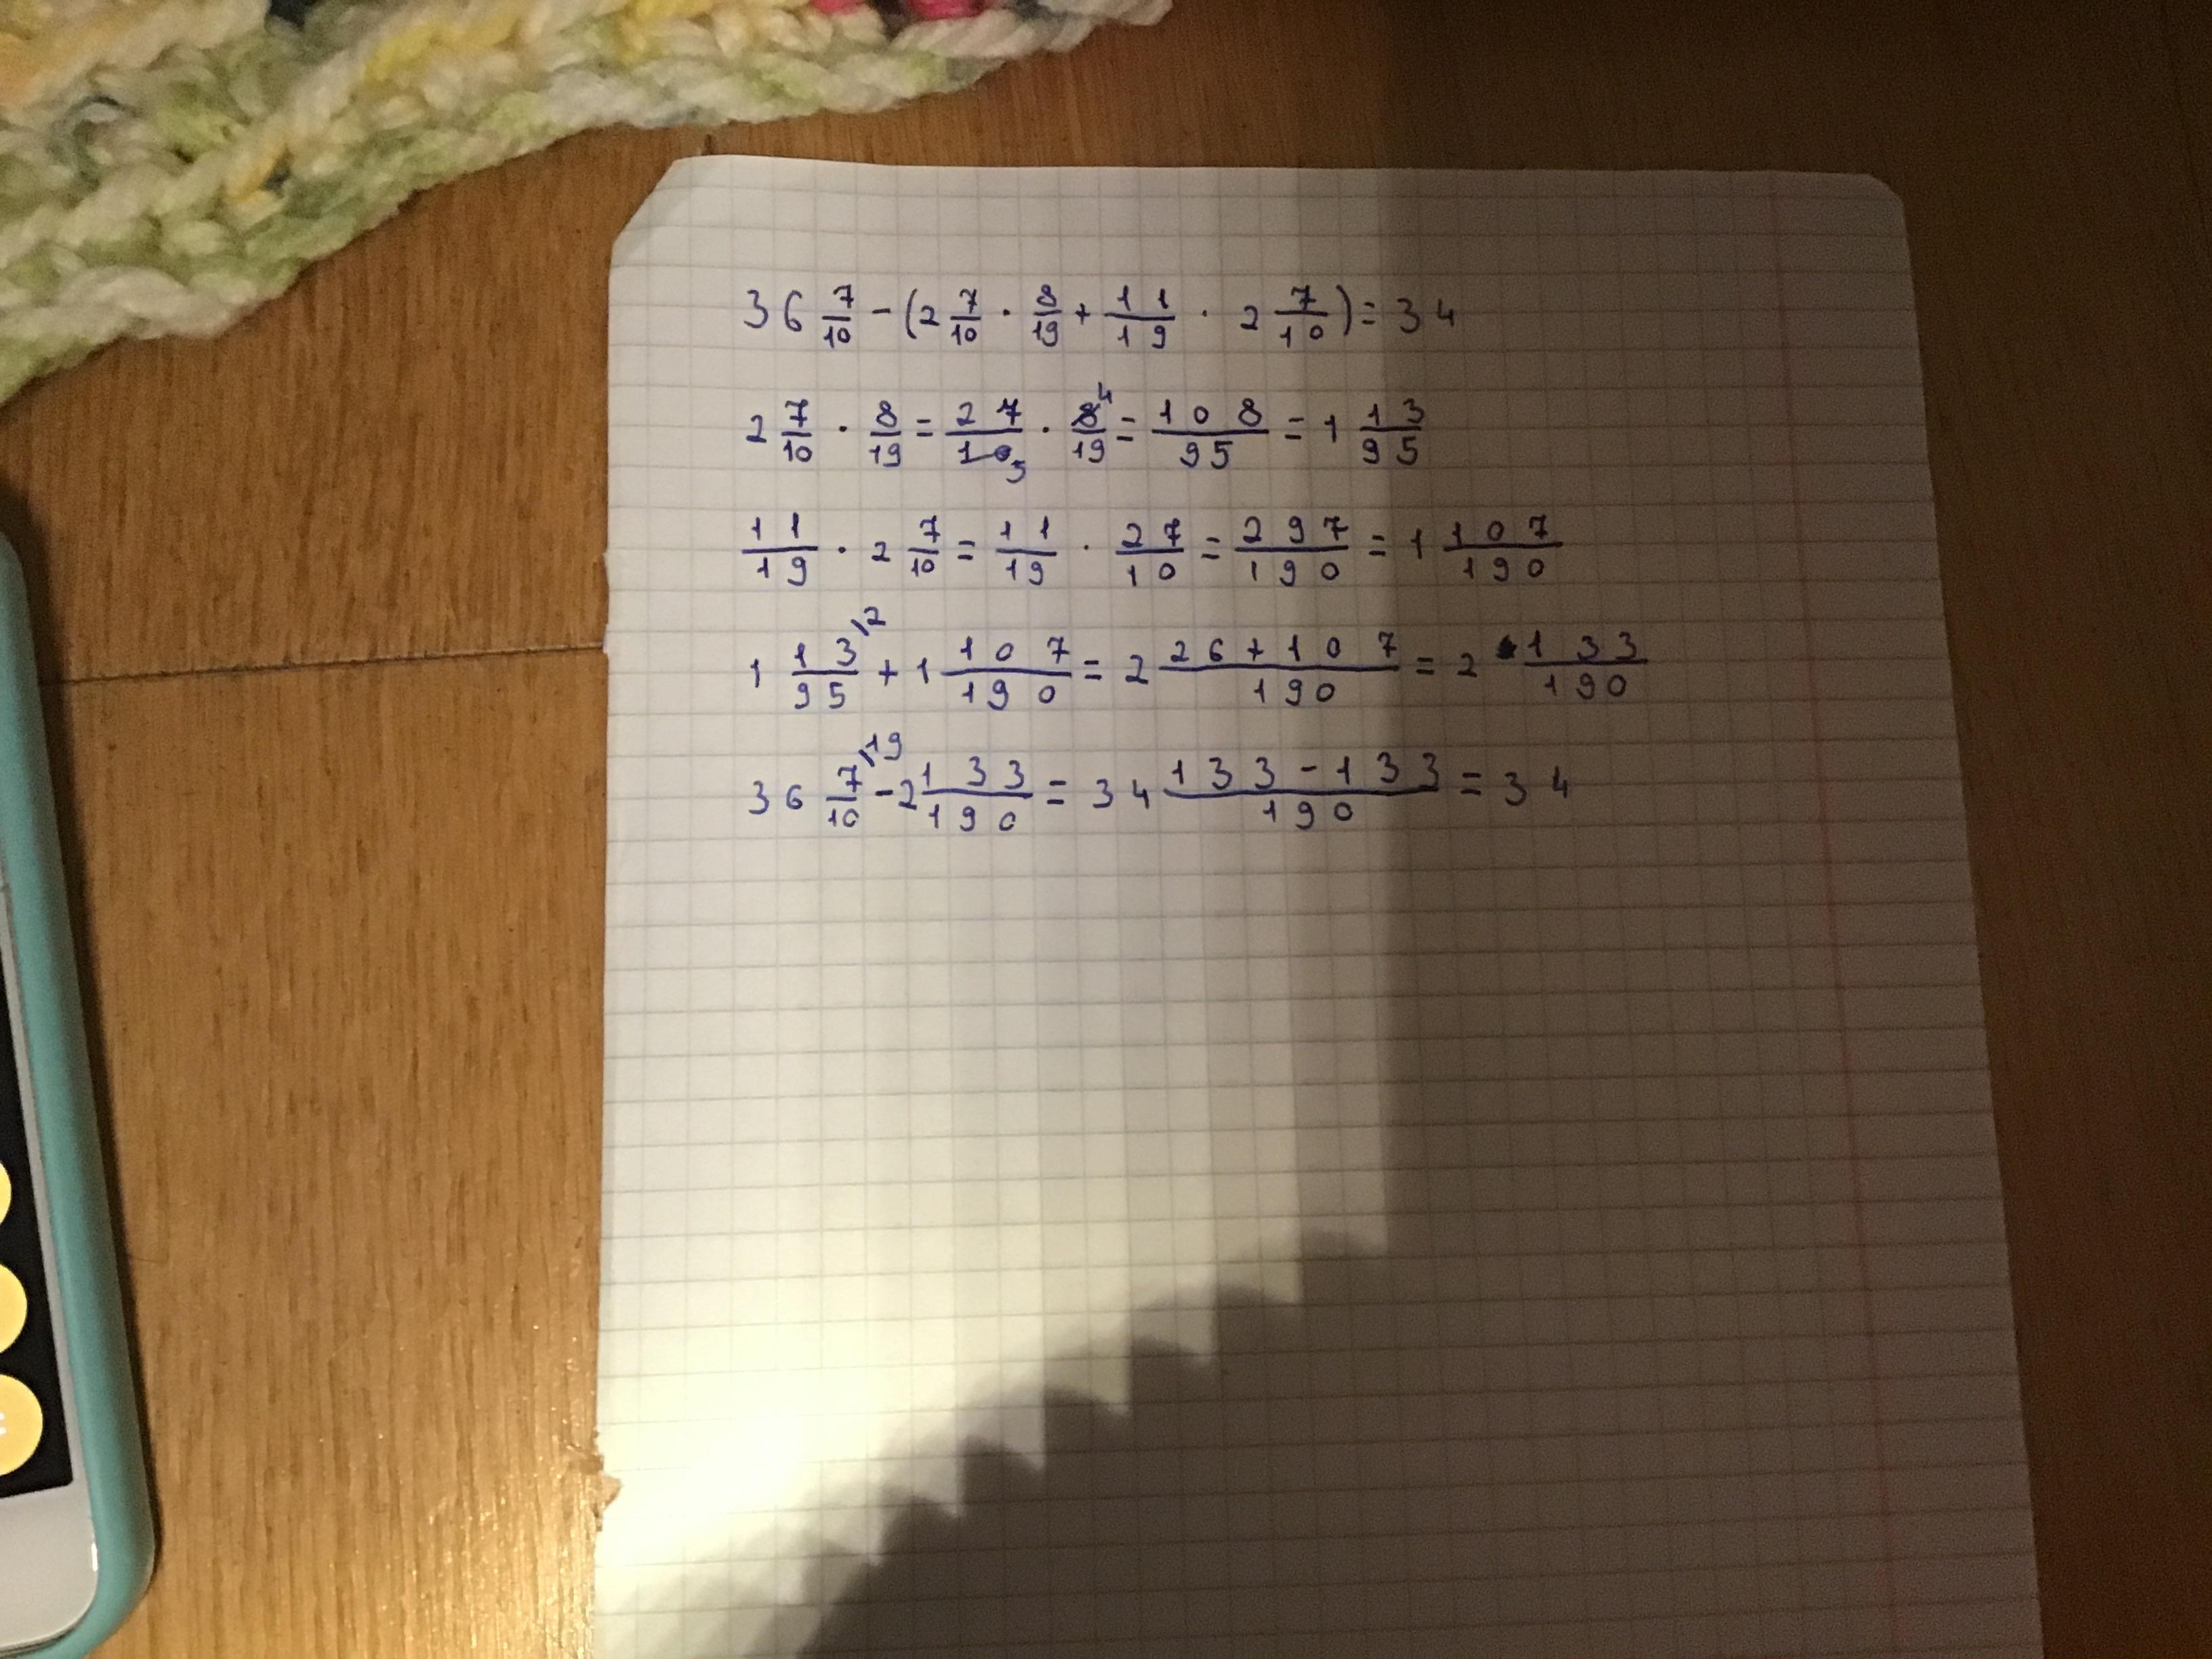 36 7/10 - (2 7/10 · 8/19 + 11/19 · 2 7/10) = 34
2 7/10 · 8/19 = 27/10 5 · 8 4/19 = 108/95 = 1 13/95
11/19 · 2 7/10 = 11/19 · 27/10 = 297/190 = 1 107/190
1 13\2/95 + 1 107/190 = 2 26+107/190 = 2 133/190
36 7\19/10 - 2 133/190 = 34 133-133/190 = 34